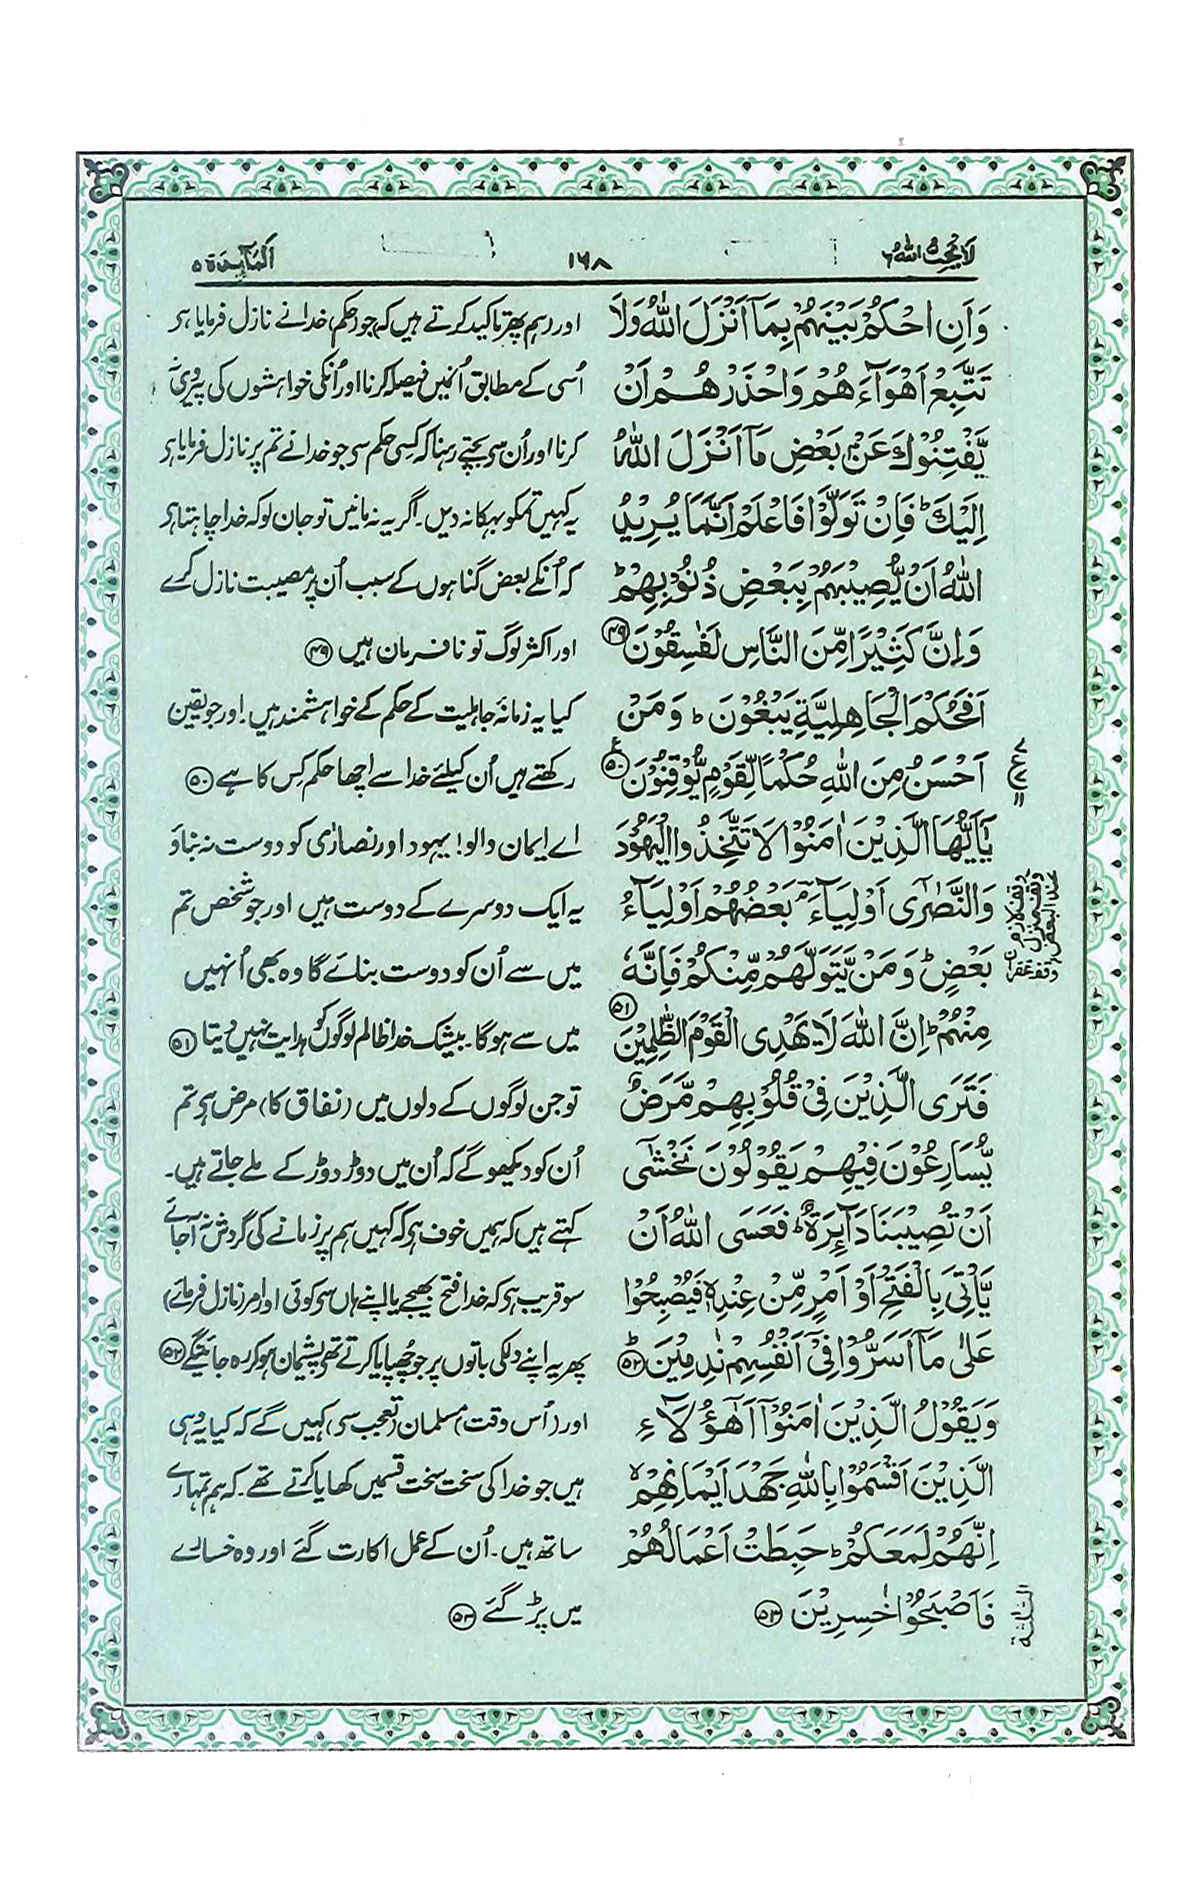 لا یحب اللہ ۶
۱۶۸
المآئدۃ ۵
وَاَنِ احْكُمْ بَيْنَهُمْ بِمَآ اَنْزَلَ اللّٰهُ وَلَا
تَتَّبِعْ اَهْوَآءَهُمْ وَاحْذَرْهُمْ اَنْ
يَّفْتِنُوْكَ عَنْۢ بَعْضِ مَآ اَنْزَلَ اللّٰهُ
اِلَيْكَ ؕ فَاِنْ تَوَلَّوْا فَاعْلَمْ اَنَّمَا يُرِيْدُ
اللّٰهُ اَنْ يُّصِيْبَهُمْ بِبَعْضِ ذُنُوْبِهِمْ ؕ
وَاِنَّ كَثِيْرًا مِّنَ النَّاسِ لَفٰسِقُوْنَ ۴۹
اَفَحُكْمَ الْجَاهِلِيَّةِ يَبْغُوْنَ ؕ وَمَنْ
اَحْسَنُ مِنَ اللّٰهِ حُكْمًا لِّقَوْمٍ يُّوْقِنُوْنَ ۵۰
يٰٓاَيُّهَا الَّذِيْنَ اٰمَنُوْا لَا تَتَّخِذُوا الْيَهُوْدَ
وَالنَّصٰرٰٓى اَوْلِيَآءَ ۘ بَعْضُهُمْ اَوْلِيَآءُ
بَعْضٍ ؕ وَمَنْ يَّتَوَلَّهُمْ مِّنْكُمْ فَاِنَّهٗ
مِنْهُمْ ؕ اِنَّ اللّٰهَ لَا يَهْدِى الْقَوْمَ الظّٰلِمِيْنَ ۵۱
فَتَرَى الَّذِيْنَ فِىْ قُلُوْبِهِمْ مَّرَضٌ
يُّسَارِعُوْنَ فِيْهِمْ يَقُوْلُوْنَ نَخْشٰٓى
اَنْ تُصِيْبَنَا دَآئِرَةٌ ؕ فَعَسَى اللّٰهُ اَنْ
يَّاْتِىَ بِالْفَتْحِ اَوْ اَمْرٍ مِّنْ عِنْدِهٖ فَيُصْبِحُوْا
عَلٰى مَآ اَسَرُّوْا فِىْٓ اَنْفُسِهِمْ نٰدِمِيْنَ ؕ ۵۲
وَيَقُوْلُ الَّذِيْنَ اٰمَنُوْٓا اَهٰٓؤُلَآءِ
الَّذِيْنَ اَقْسَمُوْا بِاللّٰهِ جَهْدَ اَيْمَانِهِمْ ۙ
اِنَّهُمْ لَمَعَكُمْ ؕ حَبِطَتْ اَعْمَالُهُمْ
فَاَصْبَحُوْا خٰسِرِيْنَ ۵۳
اور (ہم پھر تاکید کرتے ہیں کہ) جو (حکم) خدا نے نازل فرمایا ہی
اُسی کے مطابق اُنمیں فیصلہ کرنا اور اُنکی خواہشوں کی پیروی نہ
کرنا اور اُن سی بچتے رہنا کہ کسی حکم سی جو خدا نے تم پر نازل فرمایا ہی
یہ کہیں تمکو بہکا نہ دیں۔ اگر یہ نہ مانیں تو جان لو کہ خدا چاہتا ہی
کہ اُنکے بعض گناہوں کے سبب اُن پر مصیبت نازل کرے
اور اکثر لوگ تو نافرمان ہیں ۴۹
کیا یہ زمانۂ جاہلیت کے حکم کے خواہشمند ہیں۔ اور جو یقین
رکھتے ہیں اُن کیلئے خدا سے اچھا حکم کِس کا ہے ۵۰
اے ایمان والو! یہود اور نصارٰی کو دوست نہ بناؤ
یہ ایک دوسرے کے دوست ہیں اور جو شخص تم
میں سے اُن کو دوست بنائے گا وہ بھی اُنہیں
میں سے ہوگا۔ بیشک خدا ظالم لوگوں کو ہدایت نہیں دیتا ۵۱
تو جن لوگوں کے دلوں میں (نفاق کا) مرض ہی تم
اُن کو دیکھو گے کہ اُن میں دوڑ دوڑ کے ملے جاتے ہیں۔
کہتے ہیں کہ ہمیں خوف ہی کہ کہیں ہم پر زمانے کی گردش نہ آجائے
سو قریب ہی کہ خدا فتح بھیجے یا اپنے ہاں سی کوئی اور امر (نازل فرمائے)
پھر یہ اپنے دل کی باتوں پر جو چُھپایا کرتے تھے پشیمان ہو کر رہ جائینگے ۵۲
اور (اُس وقت) مسلمان (تعجب سی) کہیں گے کہ کیا یہ وُہی
ہیں جو خدا کی سخت سخت قسمیں کھایا کرتے تھے۔ کہ ہم تمہارے
ساتھ ہیں۔ اُن کے عمل اکارت گئے اور وہ خسارے
میں پڑ گئے ۵۳
وقف لازم
وقف منزل
عند البعض
وقف غفران
الثلثة